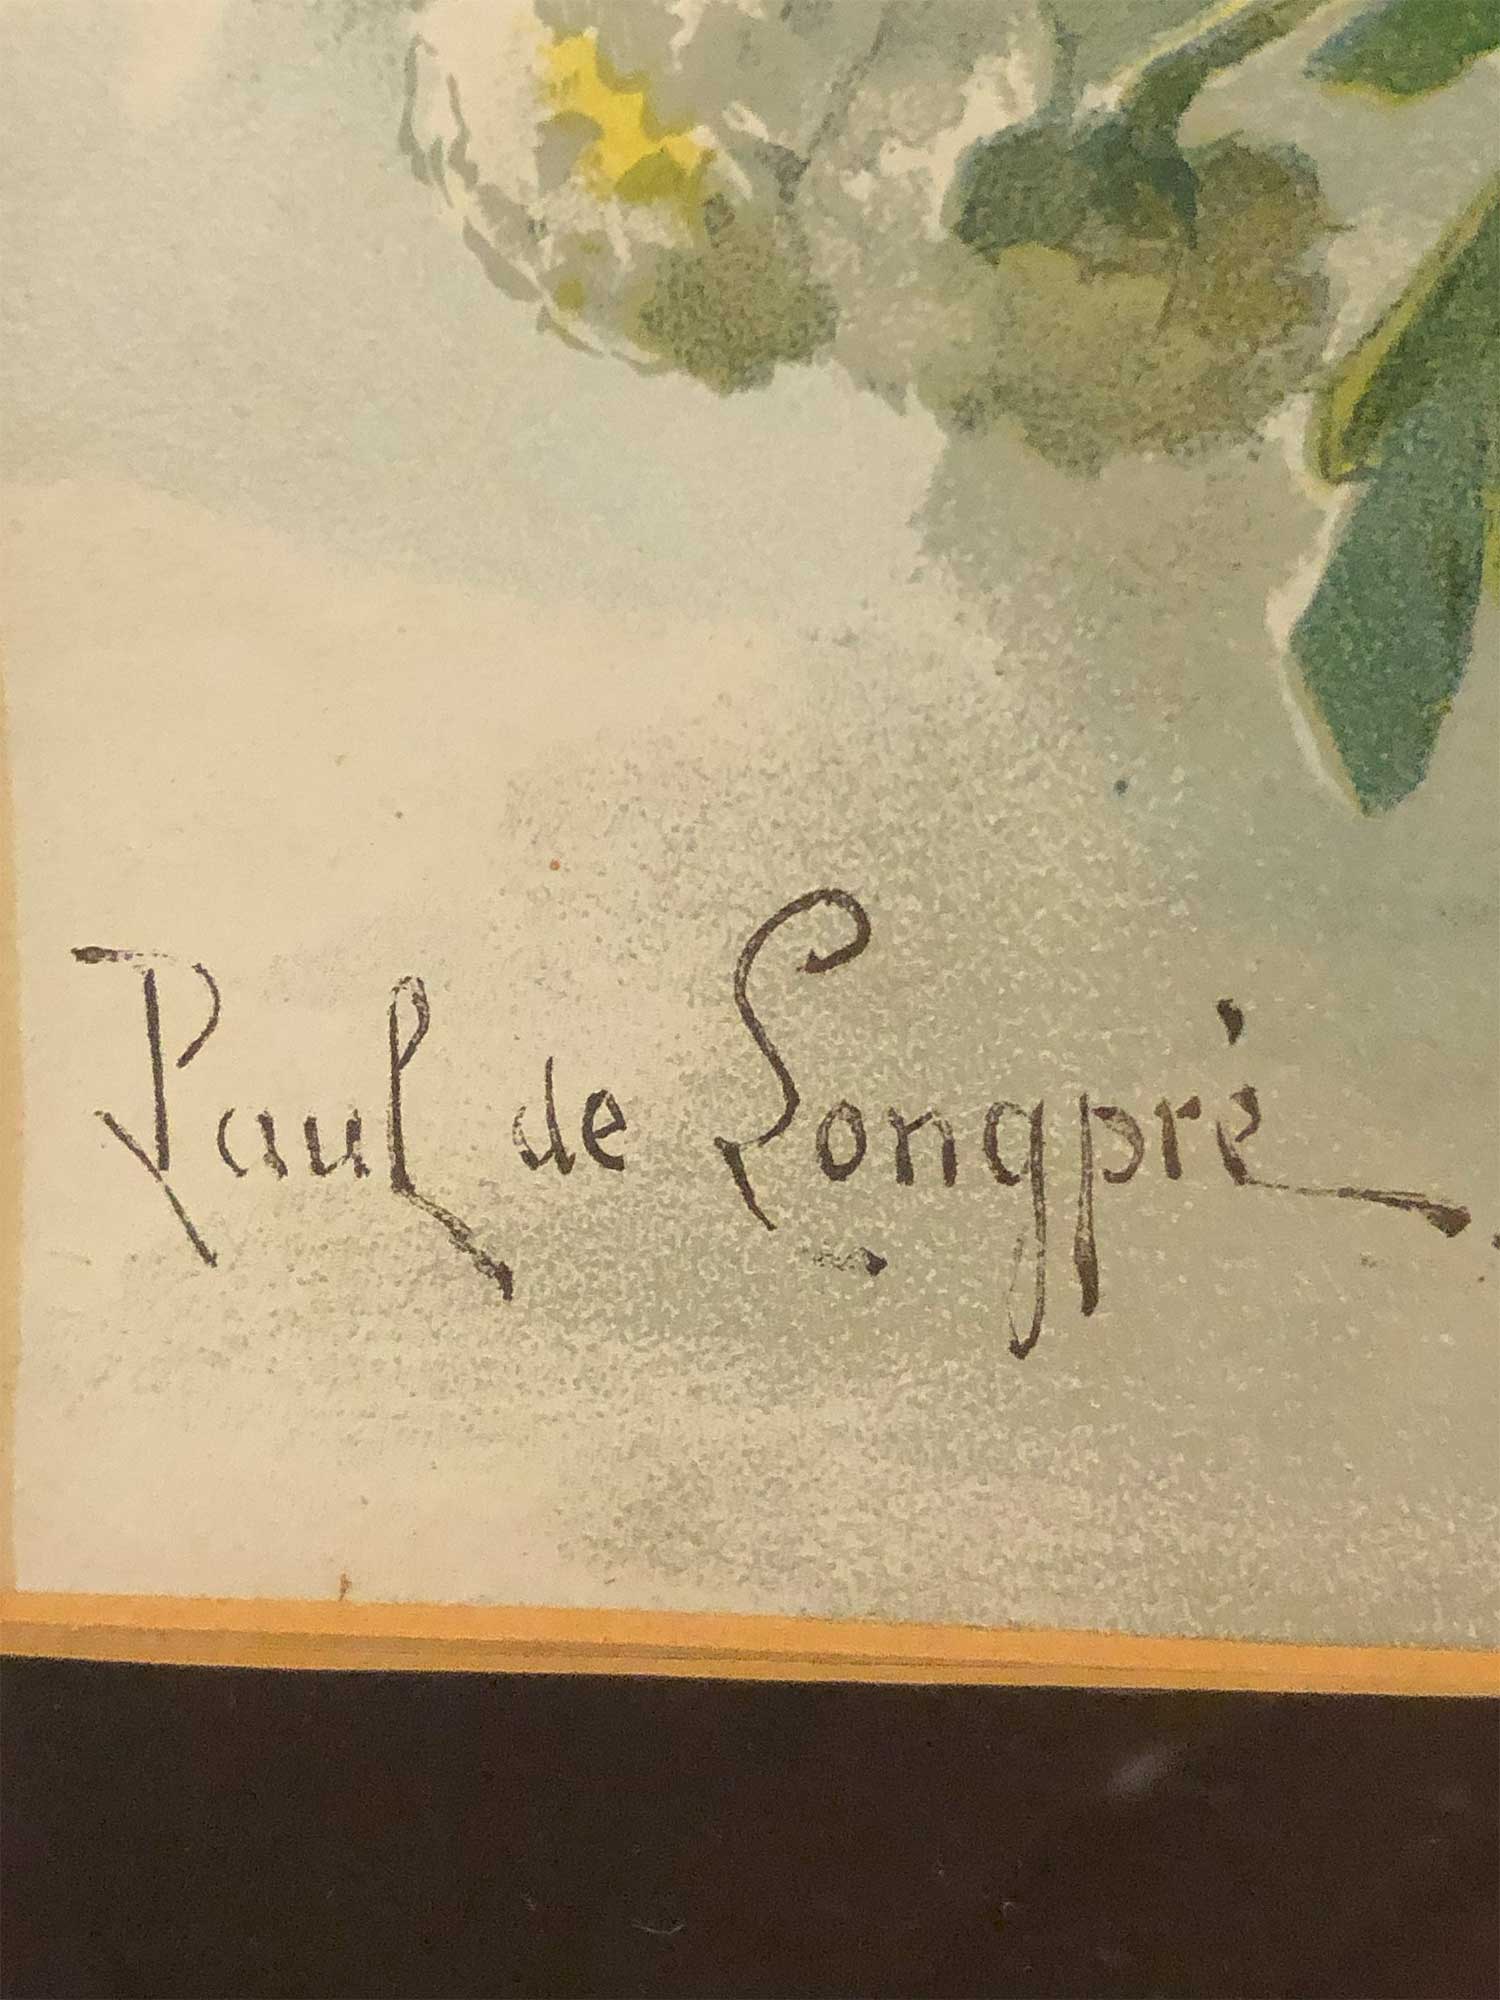 Paul de Longpré.